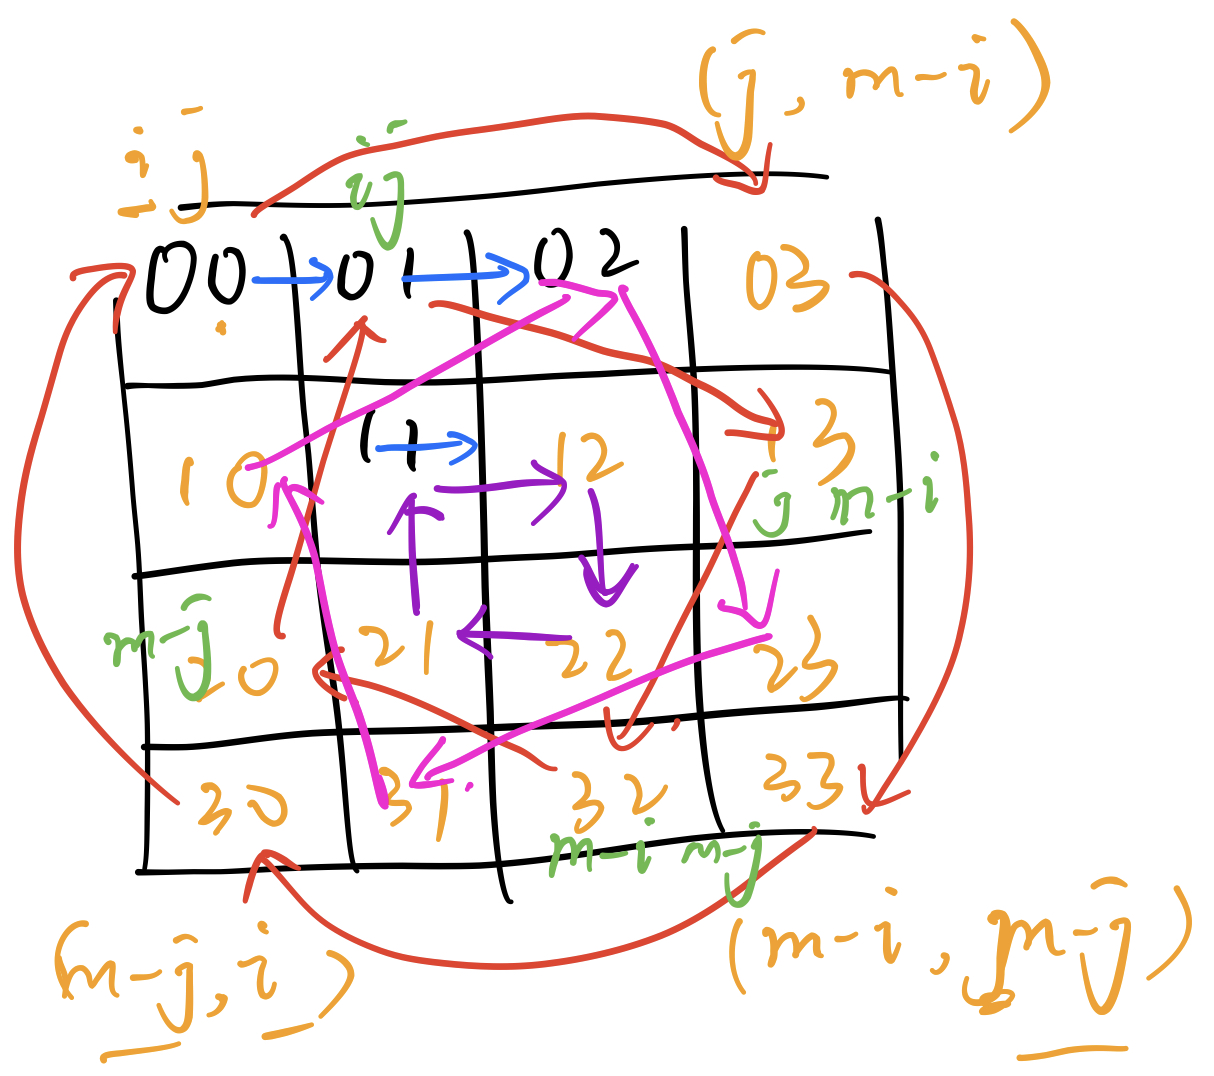 (j, m-i)
i j
ij
00 01 02 03
10 11 12 13
j m-i
m-j
20 21 22 23
30 31 32 33
m-i m-j
(m-j, i)
(m-i, m-j)